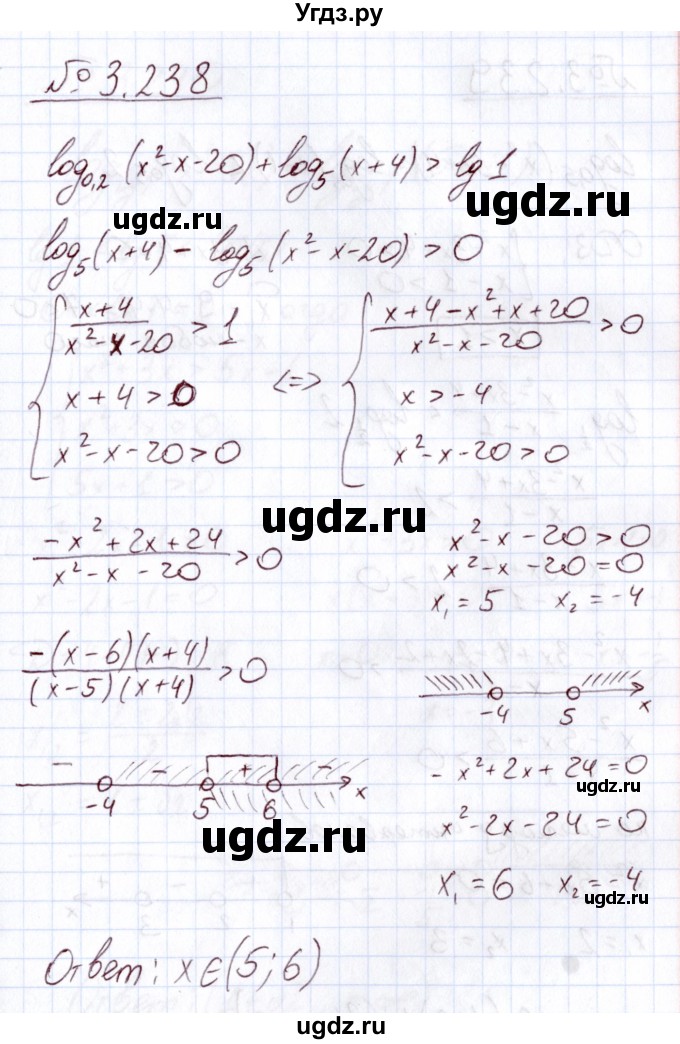 Угдз.ру
№ 3.238
log₀,₂(x²-x-20)+log₅(x+4)>lg1
ugdz.ru
ugdz.ru
log₅(x+4)-log₅(x²-x-20)>0
{ (x+4)/(x²-x-20)>1 <=> { (x+4-x²+x+20)/(x²-x-20)>0
x+4>0 x>-4
x²-x-20>0 x²-x-20>0
ugdz.ru
(-x²+2x+24)/(x²-x-20)>0
x²-x-20>0
x²-x-20=0
ugdz.ru
x₁=5 x₂=-4
(-(x-6)(x+4))/((x-5)(x+4))>0
-4 5 x
- - + -
-4 5 6 x
-x²+2x+24=0
ugdz.ru
x²-2x-24=0
ugdz.ru
x₁=6 x₂=-4
ugdz.ru
Ответ: x∈(5;6)
ugdz.ru